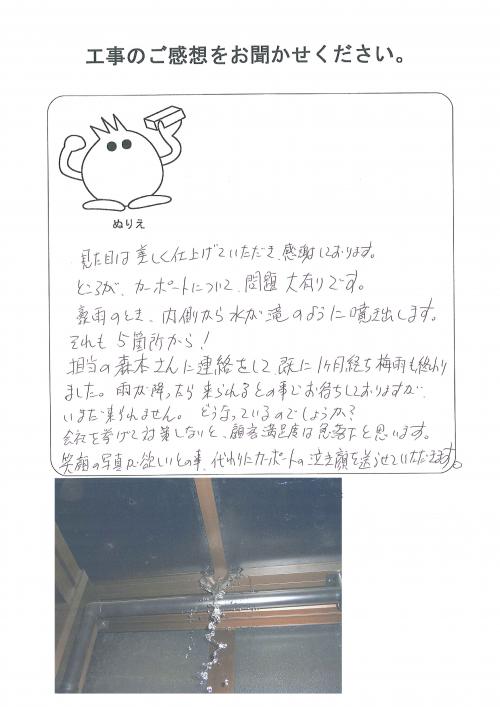 工事のご感想をお聞かせください。
ぬりえ
見た目は美しく仕上げていただき、感謝しております。
ところが、カーポートについて、問題大有りです。
豪雨のとき、内側から水が滝のように噴き出します。
それも5箇所から!
担当の森本さんに連絡をして、既に1ヶ月経ち梅雨も終わり
ました。雨が降ったら来られるとの事でお待ちしておりますが、
いまだ来られません。どうなっているのでしょうか?
会社を挙げて対策しないと、顧客満足度は急落下と思います。
笑顔の写真が欲しいとの事、代わりにカーポートの泣き顔を送らせていただきます。